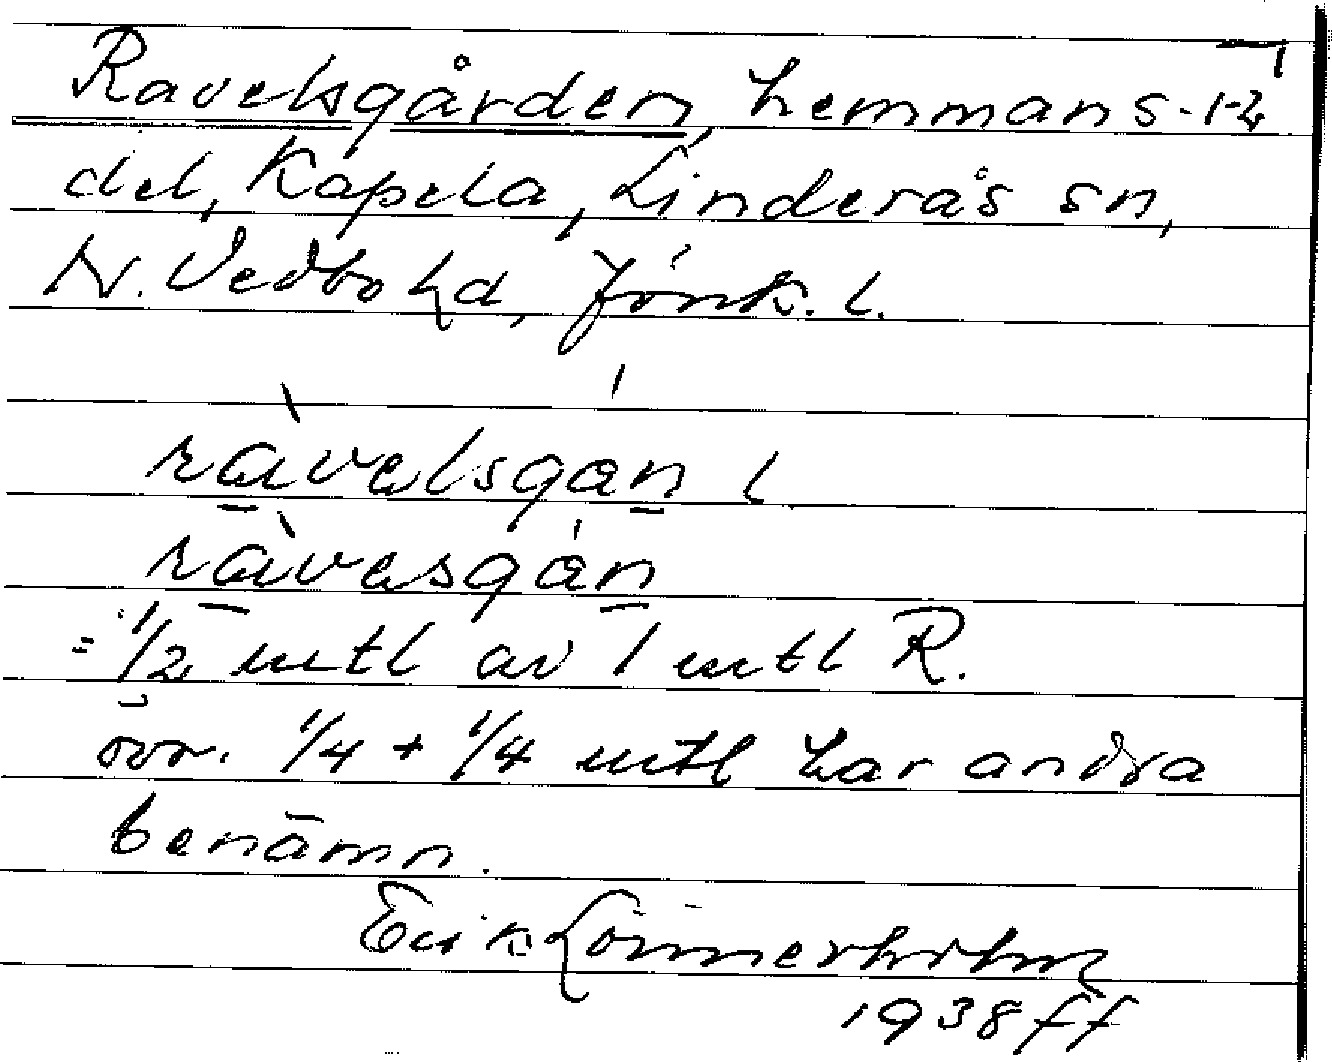 Ravelsgården, hemmans-
del, Kapela, Linderås sn,
N. Vedbo hd, Jönk. l.
rävelsgan l
rävesgån
= 1/2 mtl av 1 mtl R.
övr. 1/4 + 1/4 mtl har andra
benämn.
Erik Lönnerholm
1938 ff